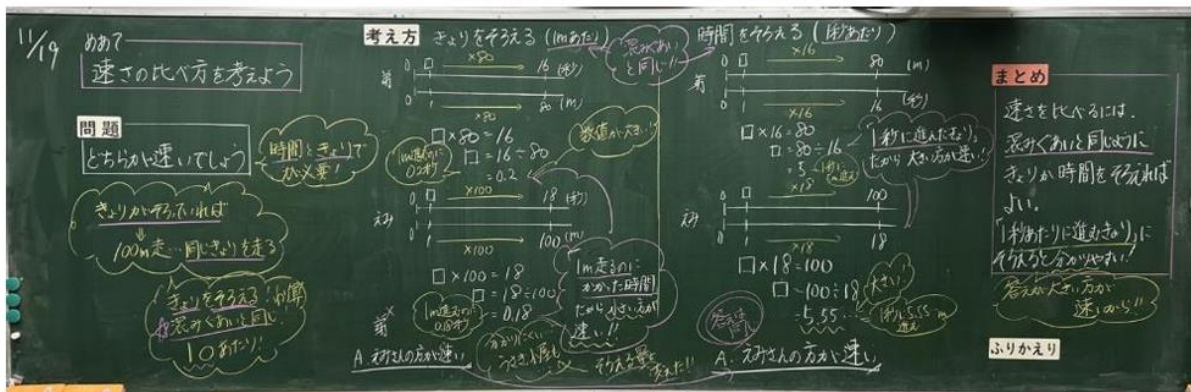 11/19
めあて
速さの比べ方を考えよう
問題
どちらが速いでしょう
時間ときょりで
が必要!
きょりがそろっていれば
↓
100m走…同じきょりを走る
きょりをそろえる!
混みぐあいと同じ!
1○あたり!
考え方 きょりをそろえる (1mあたり)
混みぐあい
と同じ!!
×80
0 □ 16 (秒)
0 1 80 (m)
×80
□×80=16
□=16÷80
=0.2
1m進むのに
0.2秒
数値が大きい!
えみ
×100
0 □ 18 (秒)
0 1 100 (m)
×100
□×100=18
□=18÷100
=0.18
1m進むのに
0.18秒
1m走るのに
かかった時間
だから小さい方が
速い!!
A. えみさんの方が速い
時間をそろえる (1秒あたり)
×16
0 □ 80 (m)
0 1 16 (秒)
×16
□×16=80
□=80÷16
=5
「1秒に進んだきょり」
だから大きい方が速い!
えみ
×18
0 □ 100
0 1 18
×18
□×18=100
□=100÷18
=5.55…
大きい!
1秒に5.55…m
進む
A. えみさんの方が速い
まとめ
速さを比べるには、
混みぐあいと同じように
きょりか時間をそろえれば
よい。
「1秒あたりに進むきょり」に
そろえると分かりやすい!
答えが大きい方が
速いから!!
ふりかえり